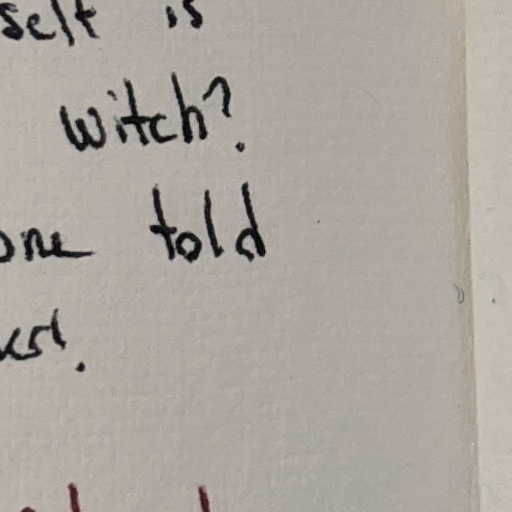 self is
witch?
one told